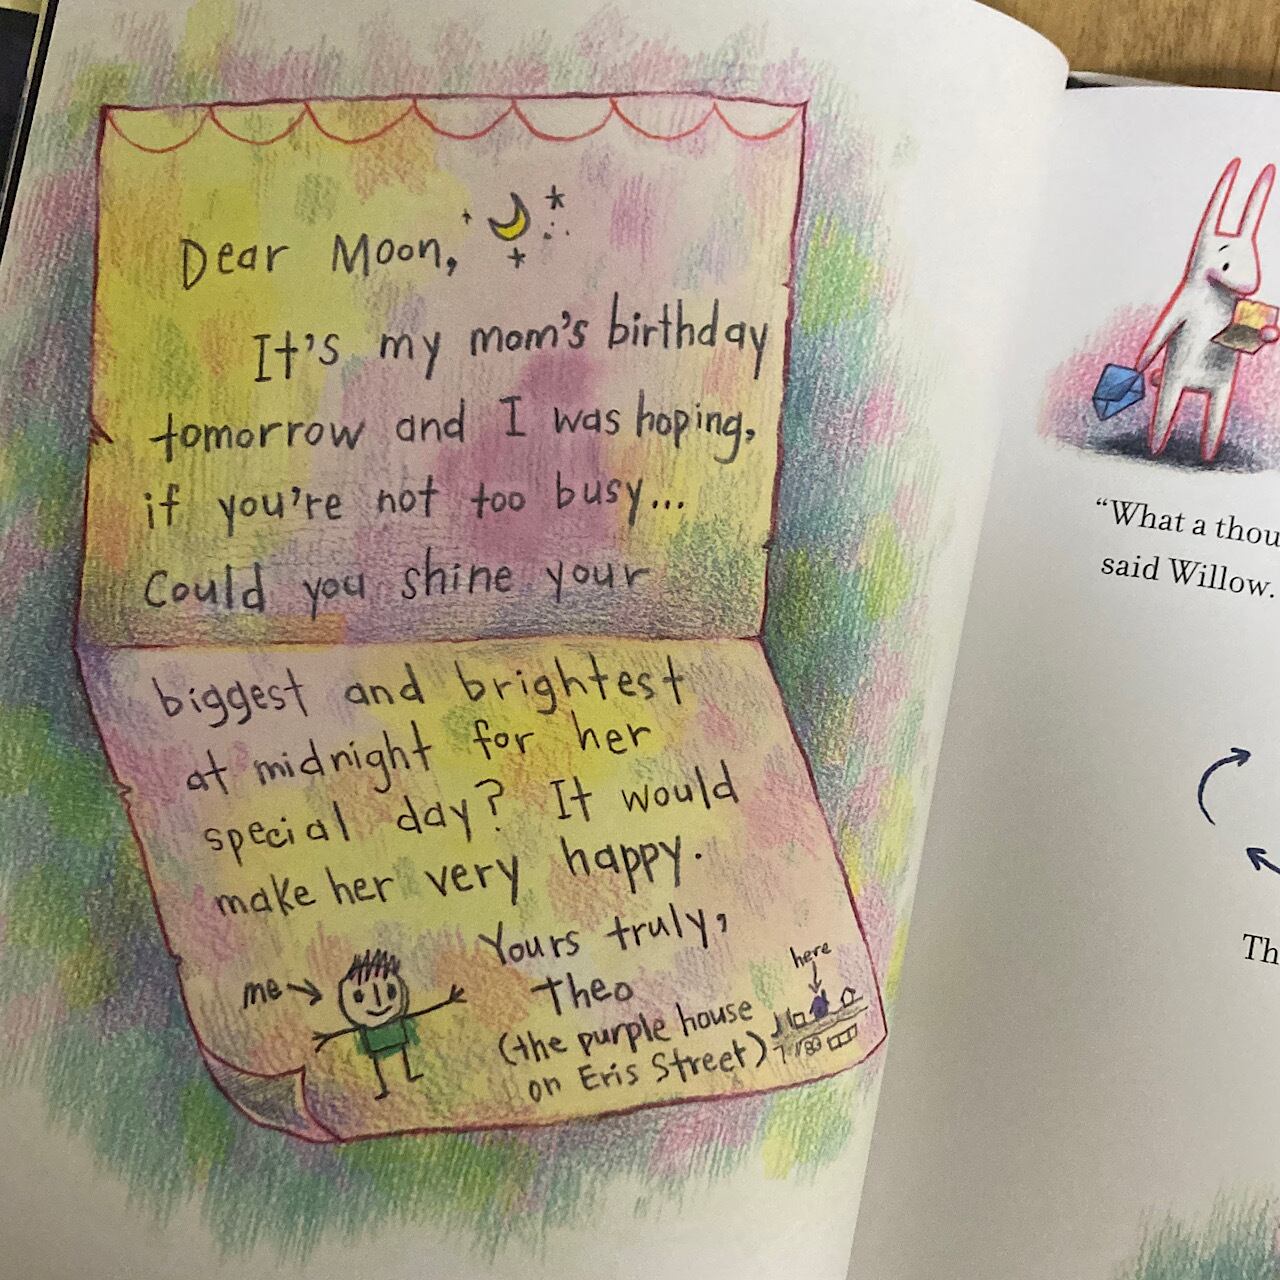 Dear Moon,
It's my mom's birthday
tomorrow and I was hoping,
if you're not too busy...
Could you shine your
biggest and brightest
at midnight for her
special day? It would
make her very happy.
Yours truly,
Theo
(the purple house
on Eris Street)
me
here
"What a thou
said Willow.
Th